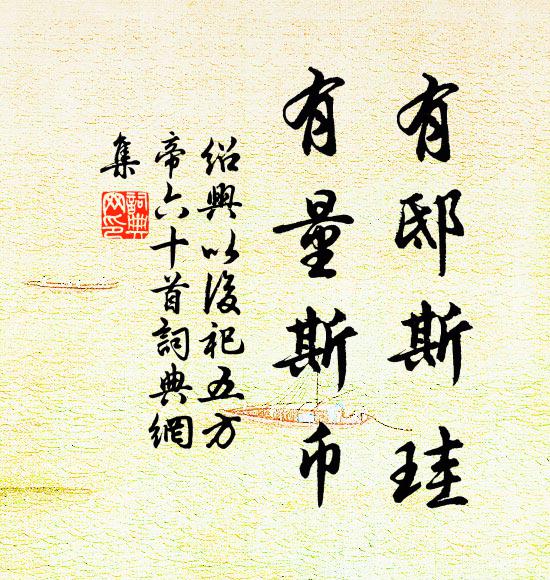 有邸斯珪
有量斯币
绍興以後祀五方
帝六十首詞典網
集
詞典
网印